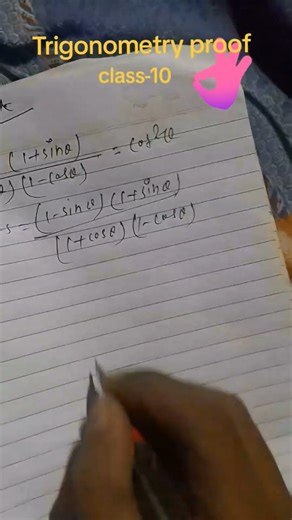 Trigonometry proof
class-10
(1+sinθ)
) (1-cosθ) = cos²θ
s = (1-sinθ) (1+sinθ)
(1+cosθ) (1-cosθ)